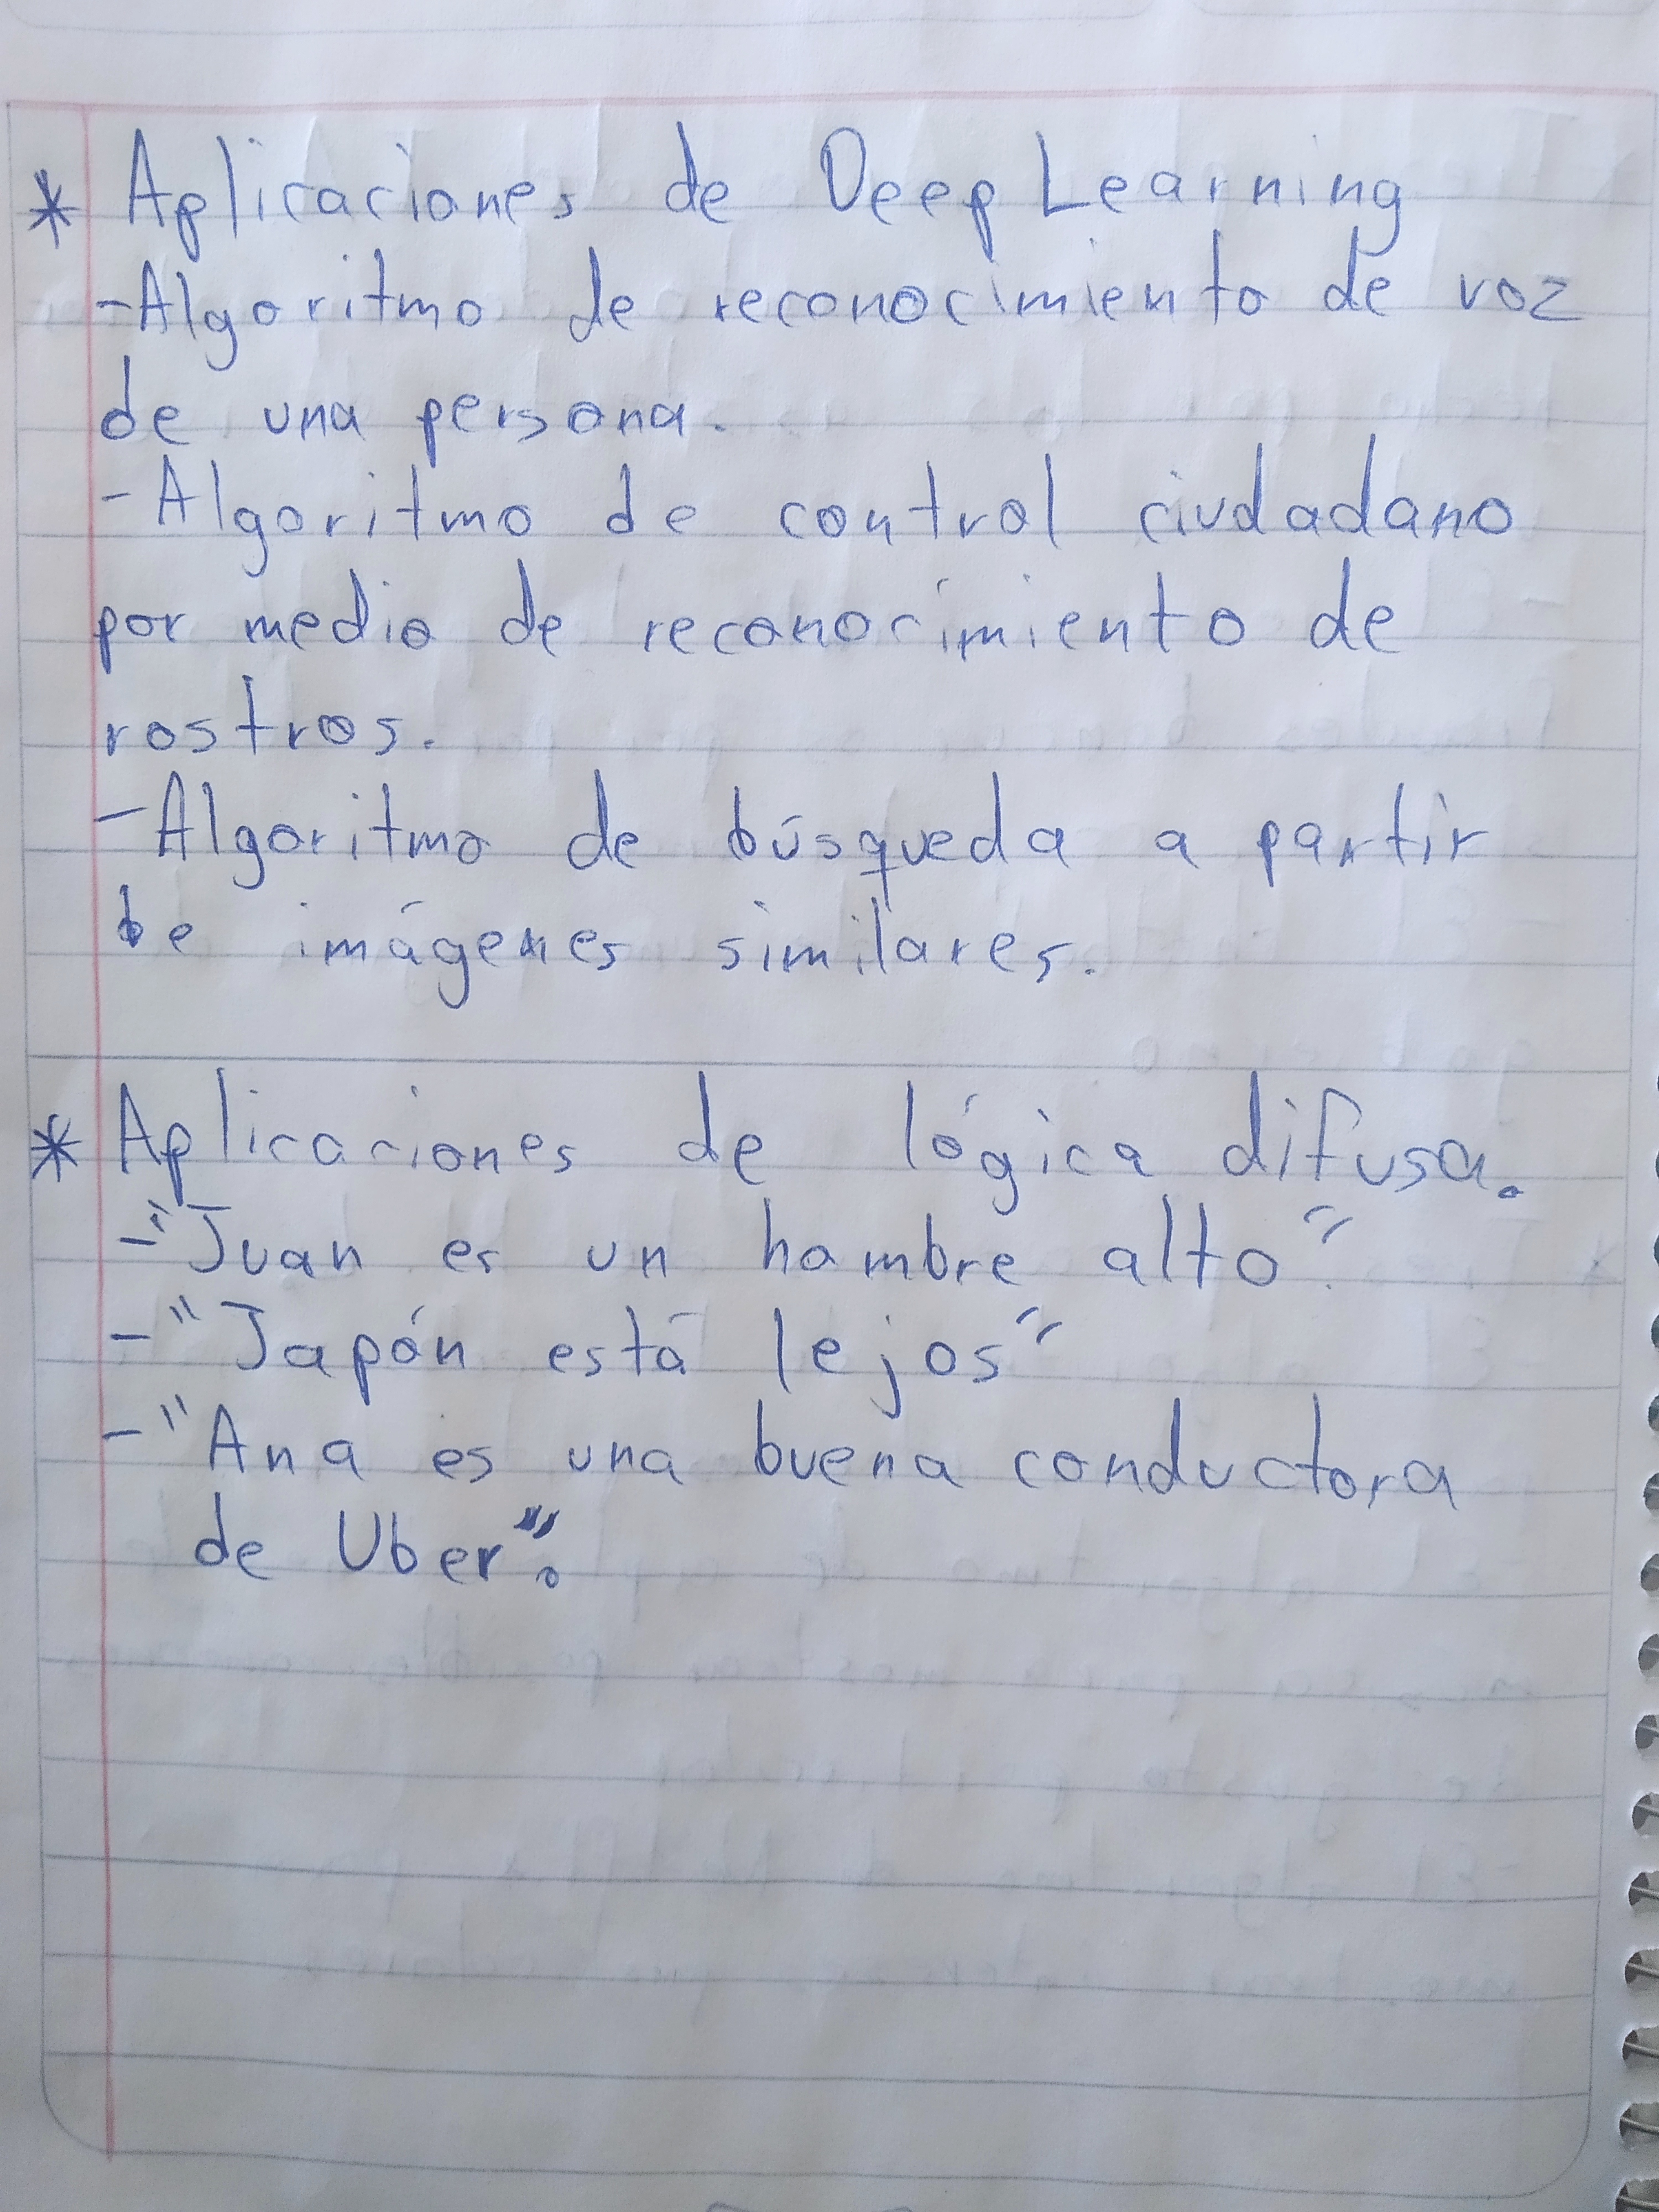 * Aplicaciones de Deep Learning
- Algoritmo de reconocimiento de voz
de una persona.
- Algoritmo de control ciudadano
por medio de reconocimiento de
rostros.
- Algoritmo de búsqueda a partir
de imágenes similares.
* Aplicaciones de lógica difusa.
- "Juan es un hombre alto".
- "Japón está lejos"
- "Ana es una buena conductora
de Uber".